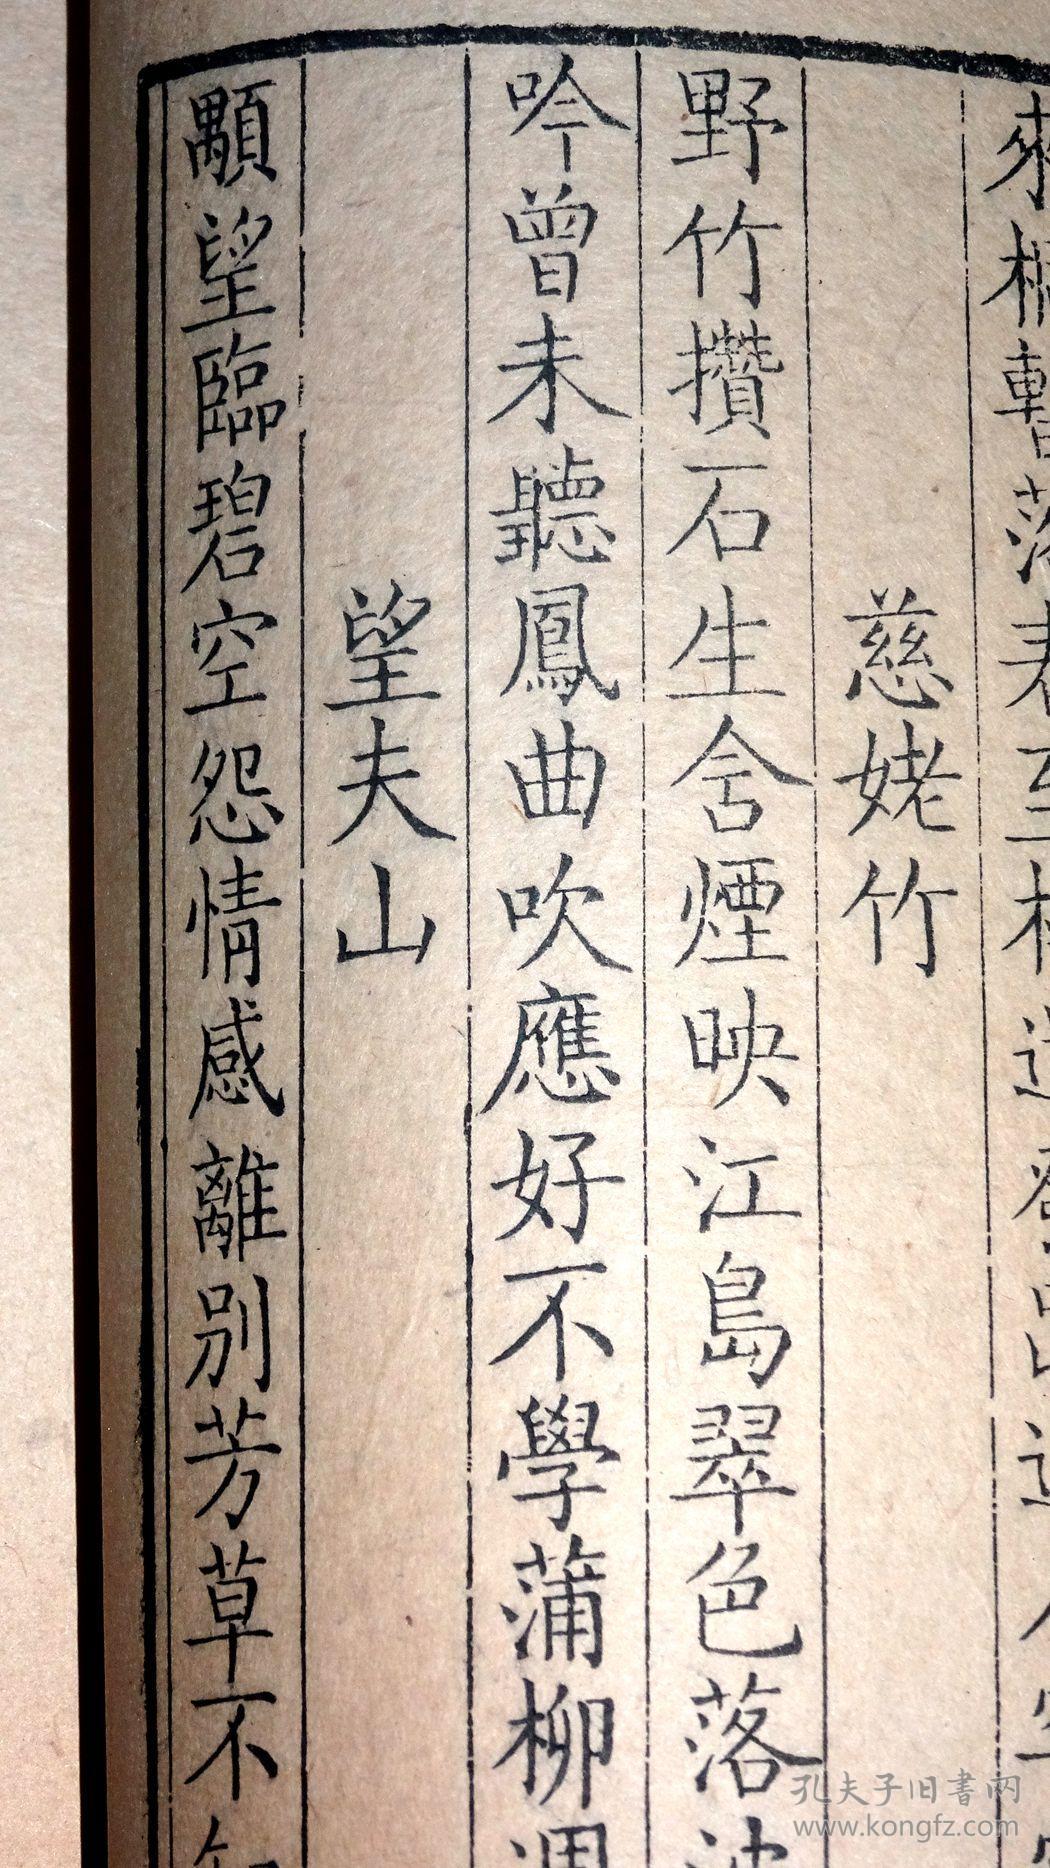 來
慈姥竹
野竹攢石生含煙映江島翠色落波
吟曾未聽鳳曲吹應好不學蒲柳凋
望夫山
顒望臨碧空怨情感離別芳草不知
孔夫子旧書网
www.kongfz.com